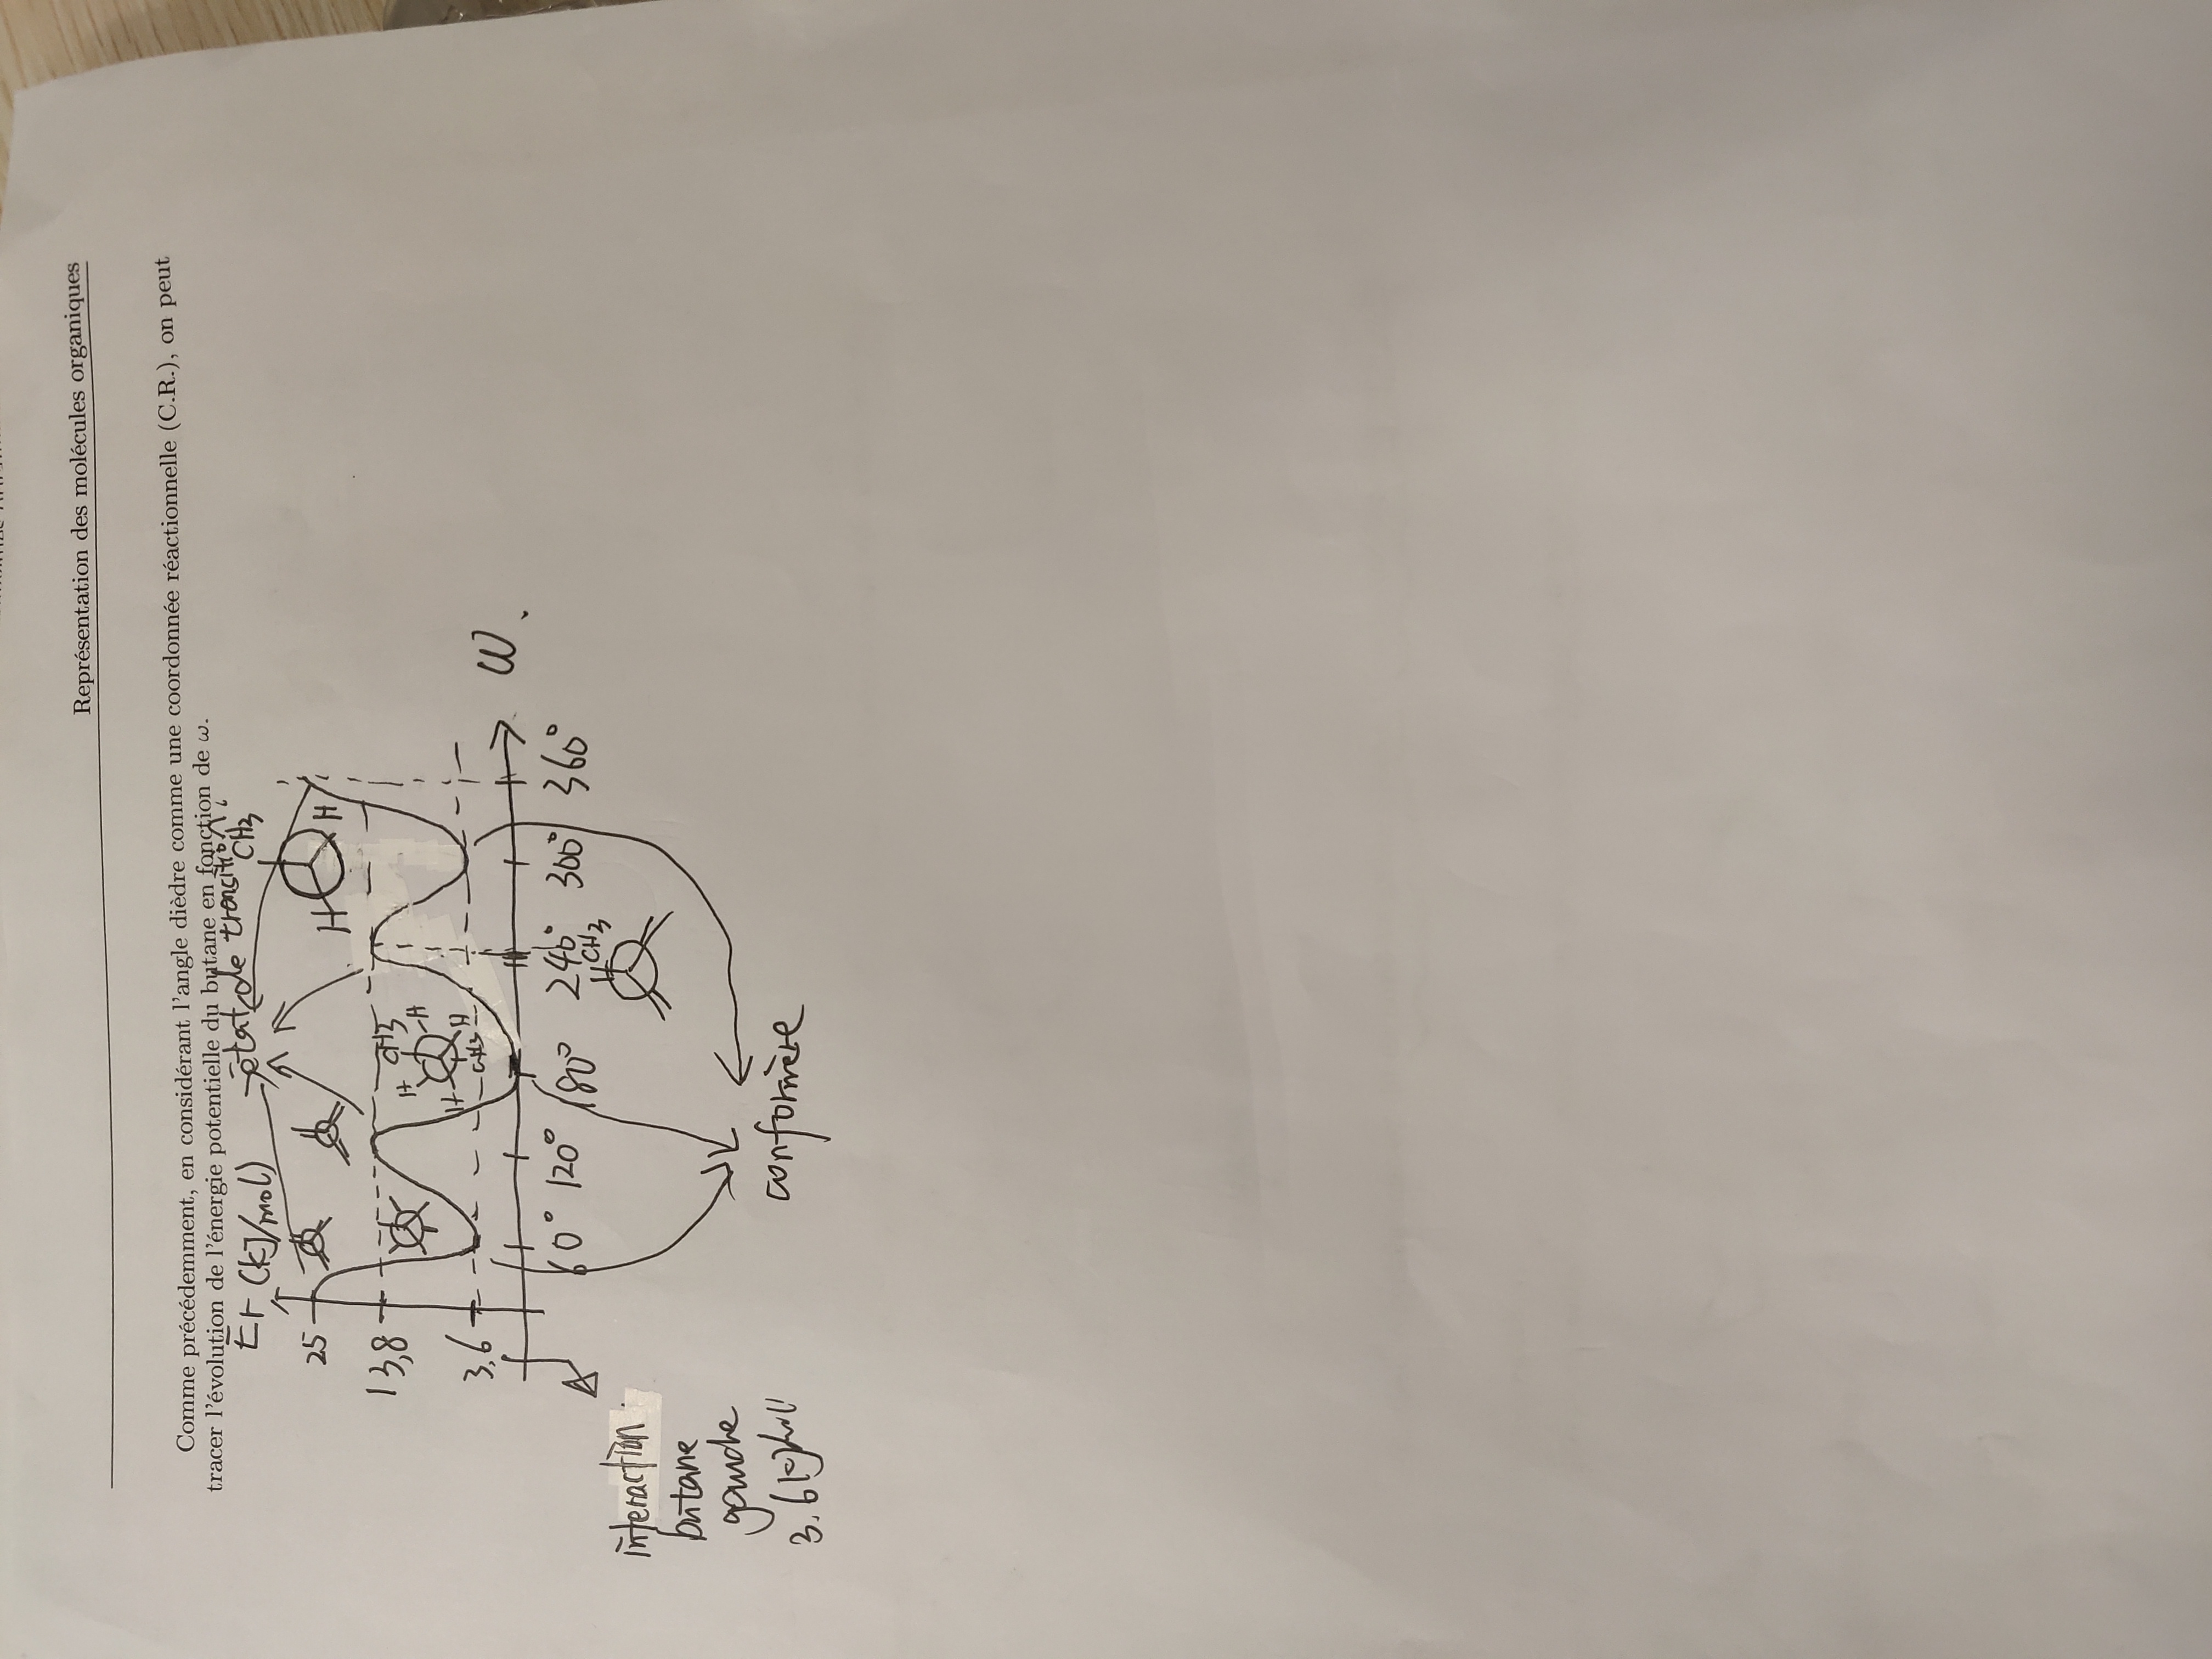 Représentation des molécules organiques
Comme précédemment, en considérant l'angle dièdre comme une coordonnée réactionnelle (C.R.), on peut
tracer l'évolution de l'énergie potentielle du butane en fonction de ω.
état de transition
(kJ/mol)
CH3
25
H H
13,8
CH3
H
H
H
H
3,6
CH3
ω.
60° 120° 180° 240° 300° 360°
CH3
interaction
butane
gauche
3,6 kJ/mol
conformère